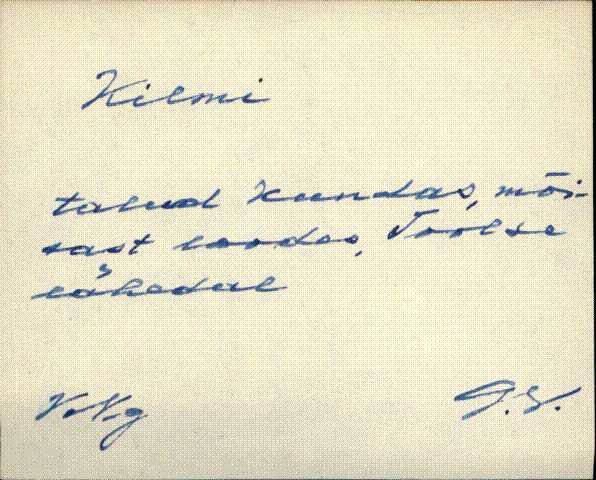 Kilmi
talud Kundas, mõi-
sast loodes, Toolse
lähedal
V-Ng
G.V.